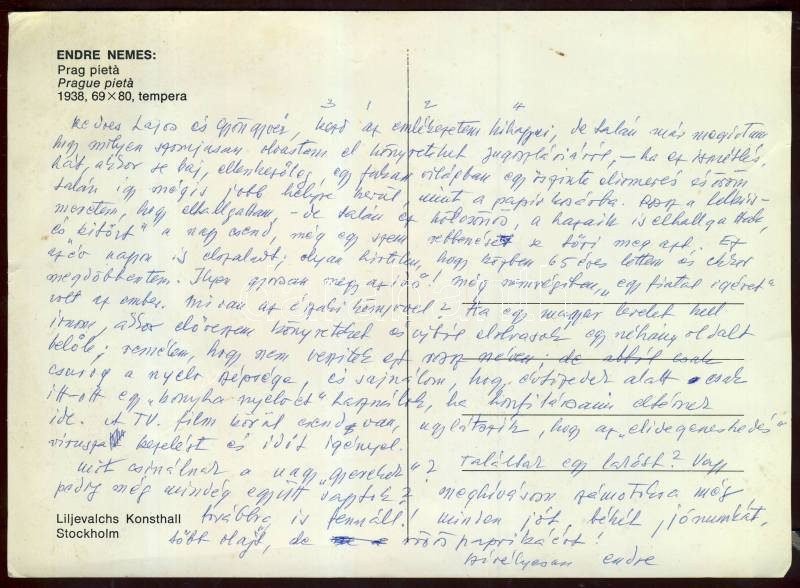 ENDRE NEMES:
Prag pietà
Prague pietà
1938, 69×80, tempera
3 1 2 4
Kedves Lajos és Gyöngyvér, kezd az emlékezetem kihagyni, de talán már megírtam
hogy milyen szomjasan olvastam el könyveteket Jugoszláviáról, – ha ez ismétlés,
hát akkor se baj, ellenkezőleg, egy falusi világban egy őszinte elismerés és öröm
talán így mégis jobb helyre kerül, mint a papír kosárba. a lelkiis-
meretem, hogy elhallgattam, – de talán ez kölcsönös, a hazaik is elhallgattak,
és "kitört" a nagy csend, még egy szem rebbenése se töri meg azt. Ez
az év nagyon is elszaladt; olyan hirtelen, hogy közben 65 éves lettem és ekkor
megdöbbentem. Ilyen gyorsan megy az idő! még nemrégiben "egy fiatal ígéret"
volt az ember. Mi van az északi könyvvel? Ha egy magyar levelet kell
írnom, akkor előveszem könyveteket és újból elolvasok egy néhány oldalt
belőle; remélem, hogy nem veszitek ezt néven: de abból csak
csurog a nyelv szépsége, és sajnálom, hogy évtizedek alatt csak
itt-ott egy "konyha nyelvet" használok, ha honfitársaim eltérnek
ide. A TV. film körül csend van, úgylátszik, hogy az "elidegenedés"
vírusza kezelést és időt igényel.
Mit csinálnak a nagy "gyerekek"? Találtak egy lakást? Vagy
pedig még mindég együtt vagytok? meghívásom számotokra még
továbbra is fennáll! minden jót, békét, jó munkát,
több olajt, de vörös paprikáért!
Szívélyesen Endre
Liljevalchs Konsthall
Stockholm